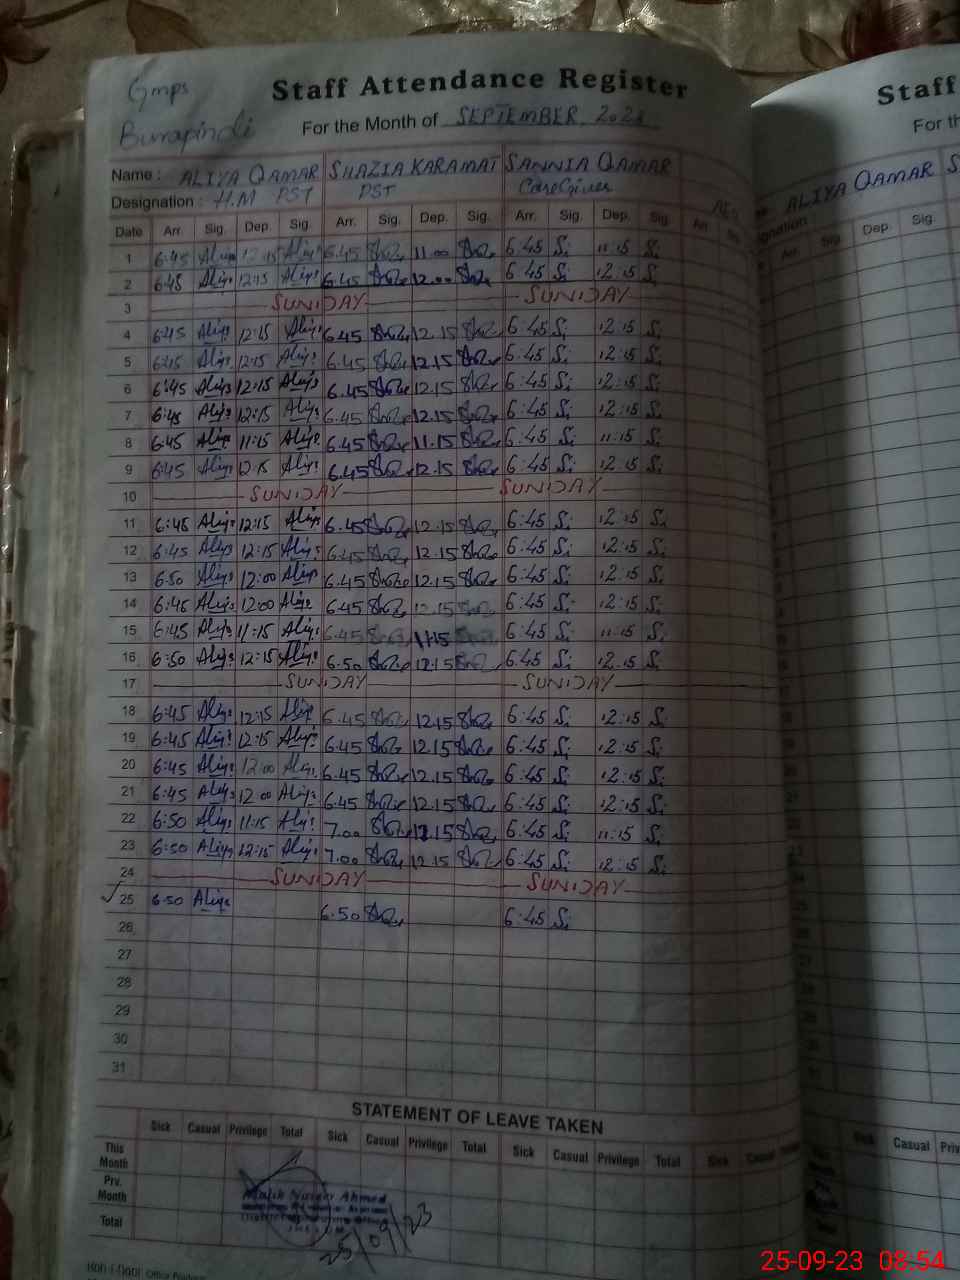 Gmps
Burrapindi
Staff Attendance Register
For the Month of SEPTEMBER 2023
Name : ALIYA QAMAR SHAZIA KARAMAT SANNIA QAMAR
Designation : H.M PST PST CareGiver
Date Arr. Sig. Dep. Sig. Arr. Sig. Dep. Sig. Arr. Sig. Dep. Sig. Arr.
1 6:45 Aliya 12:15 Aliya 6.45 11.00 6:45 S. 11:15 S.
2 6:45 Aliya 12:15 Aliya 6.45 12.00 6:45 S. 12:15 S.
3 SUNDAY SUNDAY
4 6:45 Aliya 12:15 Aliya 6.45 12.15 6:45 S. 12:15 S.
5 6:45 Aliya 12:15 Aliya 6.45 12.15 6:45 S. 12:15 S.
6 6:45 Aliya 12:15 Aliya 6.45 12.15 6:45 S. 12:15 S.
7 6:45 Aliya 12:15 Aliya 6.45 12.15 6:45 S. 12:15 S.
8 6:45 Aliya 11:15 Aliya 6.45 11.15 6:45 S. 11:15 S.
9 6:45 Aliya 12:15 Aliya 6.45 12.15 6:45 S. 12:15 S.
10 SUNDAY SUNDAY
11 6:45 Aliya 12:15 Aliya 6.45 12.15 6:45 S. 12:15 S.
12 6:45 Aliya 12:15 Aliya 6.45 12.15 6:45 S. 12:15 S.
13 6:50 Aliya 12:00 Aliya 6.45 12.15 6:45 S. 12:15 S.
14 6:45 Aliya 12:00 Aliya 6.45 12.15 6:45 S. 12:15 S.
15 6:45 Aliya 11:15 Aliya 6.45 11.15 6:45 S. 11:15 S.
16 6:50 Aliya 12:15 Aliya 6.50 12.15 6:45 S. 12.15 S.
17 SUNDAY SUNDAY
18 6:45 Aliya 12:15 Aliya 6.45 12.15 6:45 S. 12:15 S.
19 6:45 Aliya 12:15 Aliya 6.45 12.15 6:45 S. 12:15 S.
20 6:45 Aliya 12:00 Aliya 6.45 12.15 6:45 S. 12:15 S.
21 6:45 Aliya 12:00 Aliya 6.45 12.15 6:45 S. 12:15 S.
22 6:50 Aliya 11:15 Aliya 7.00 12.15 6:45 S. 11:15 S.
23 6:50 Aliya 12:15 Aliya 7.00 12.15 6:45 S. 12:15 S.
24 SUNDAY SUNDAY
25 6:50 Aliya 6.50 6:45 S.
26
27
28
29
30
31
STATEMENT OF LEAVE TAKEN
Sick Casual Privilege Total Sick Casual Privilege Total Sick Casual Privilege Total Sick Casual
This Month
Prv. Month
Total
Malik Naseer Ahmed
25/09/23
Staff
For th
ALIYA QAMAR S
Arr. Sig. Dep. Sig.
Sick Casual Priv
25-09-23 08:54